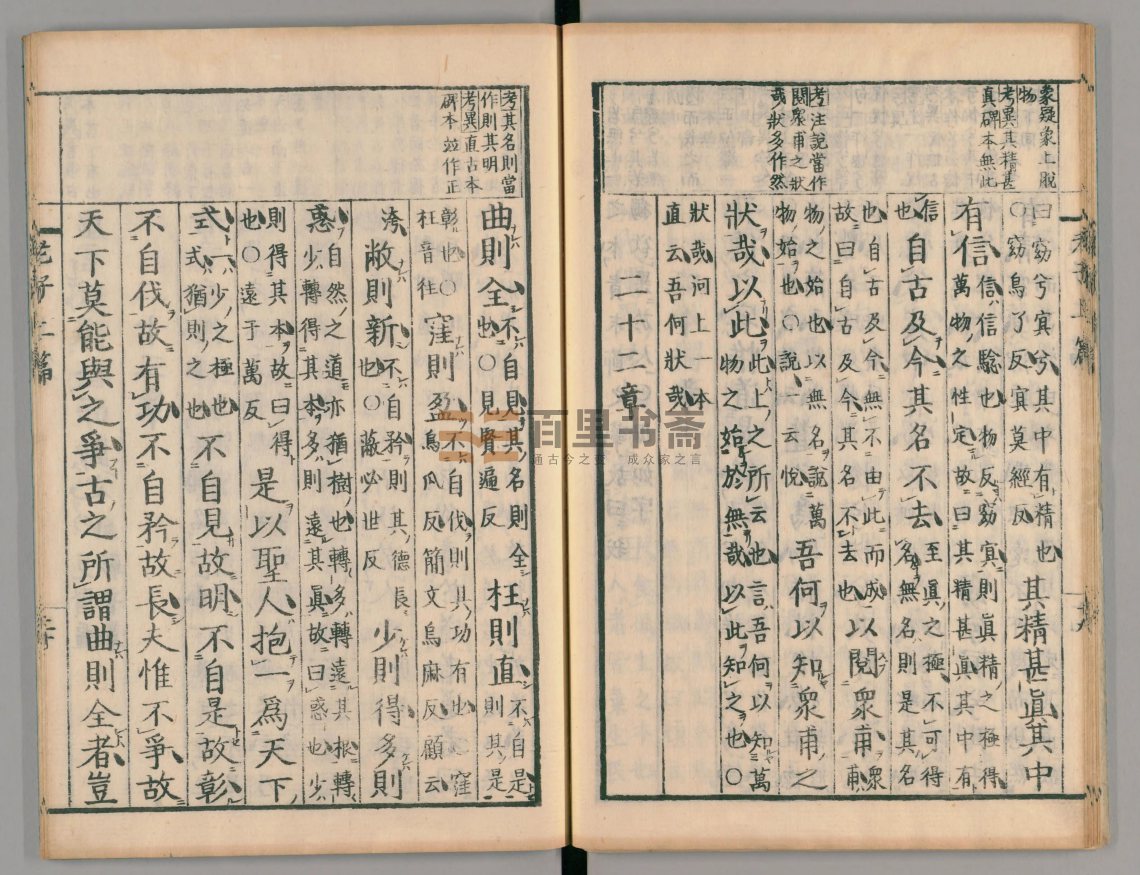 象疑象上脫
物
考異其精甚
真碑本無此
考注說當作
閱衆甫之狀
哉狀多作然
曰窈兮冥兮其中有精也
○窈烏了反冥莫經反
其精甚眞其中
有信
信信驗也物反窈冥則眞精之極得
萬物之性定故曰其精甚眞其中有
信也
自古及今其名不去
至眞之極不可得
名無名則是其名
也自古及今無不由此而成
故曰自古及今其名不去也
以閱衆甫
衆甫
物之始也以無名說萬
物始也○說一云悅
吾何以知衆甫之
狀哉以此
此上之所云也言吾何以知萬
物之始於無哉以此知之也○
狀哉河上一本
直云吾何狀哉
二十二章
考其名則當
作則其明
考異直古本
碑本竝作正
曲則全
不自見其名則全
也○見賢遍反
枉則直
不自是
則其是
彰也○
枉音往
窪則盈
不自伐則其功有也○窪
烏瓜反簡文烏麻反顧云
洿
敝則新
不自矜則其德長
也○敝必世反
少則得多則
惑
自然之道亦猶樹也轉多轉遠其根轉
少轉得其本多則遠其眞故曰惑也少
則得其本故曰得
也○遠于萬反
是以聖人抱一爲天下
式
一少之極也
式猶則之也
不自見故明不自是故彰
不自伐故有功不自矜故長夫惟不爭故
天下莫能與之爭古之所謂曲則全者豈
老子上篇
百里书斋
通古今之变 成众家之言